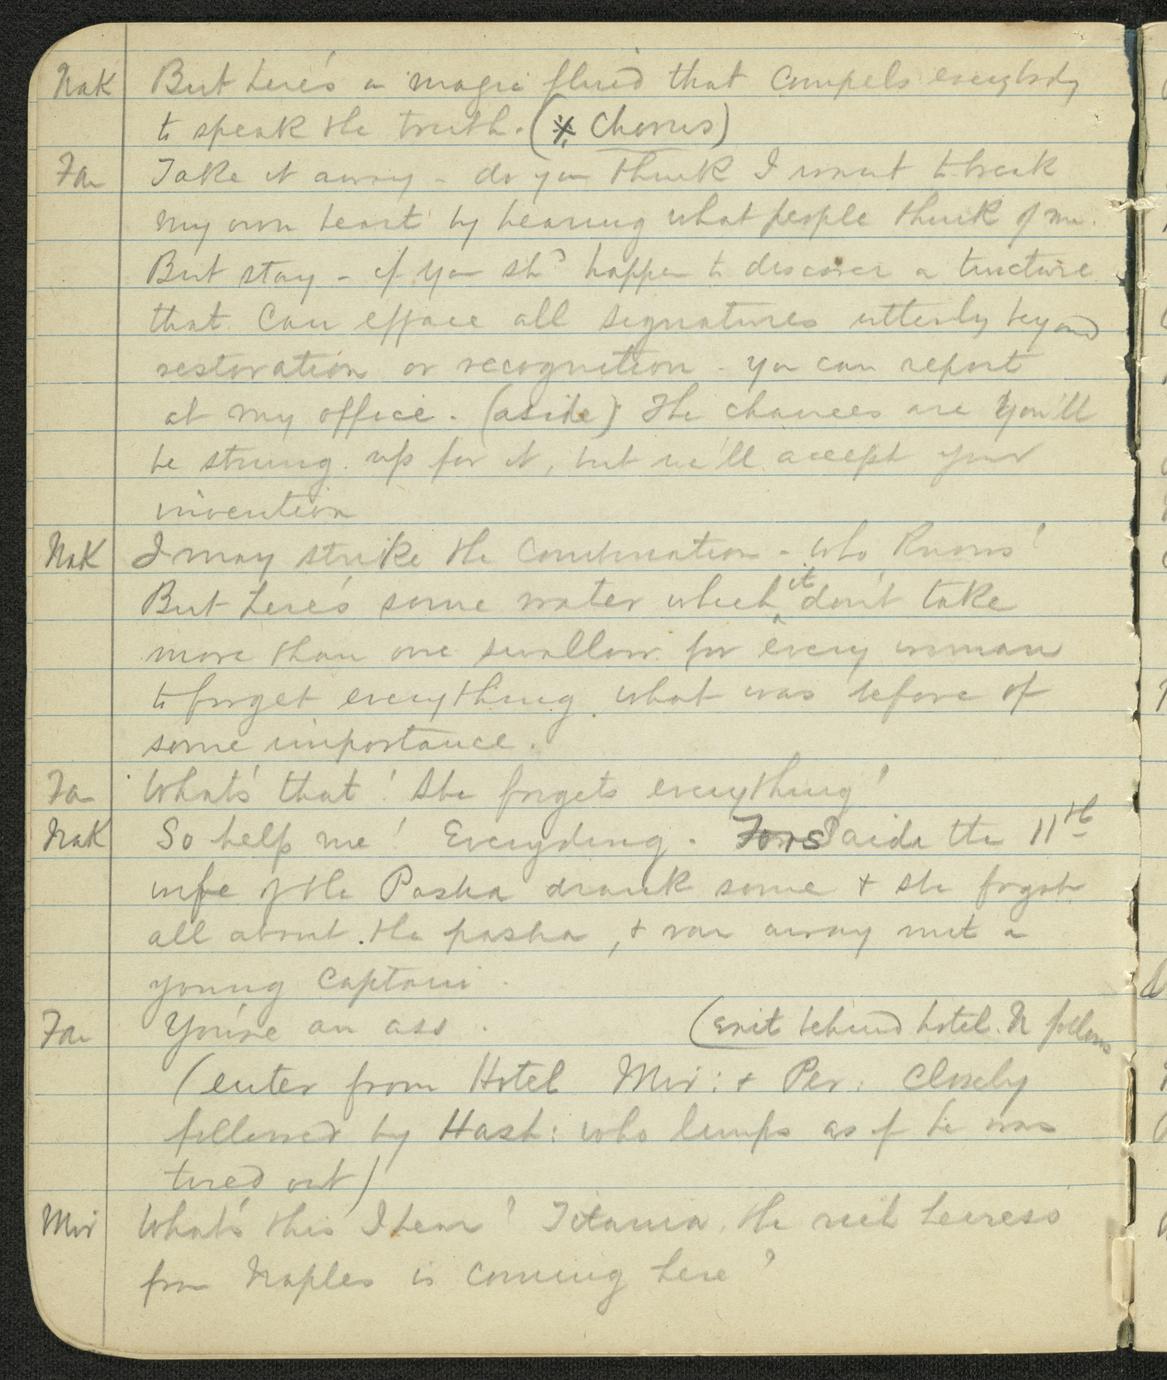 Nak But here's a magic fluid that compels everybody
to speak the truth. (* Chorus)
Fan Take it away - do you think I want to break
my own heart by hearing what people think of me.
But stay - if you shd happen to discover a tincture
that can efface all signatures utterly beyond
restoration or recognition - you can report
at my office. (aside) The chances are you'll
be strung up for it, but we'll accept your
invention
Nak I may strike the combination - who knows!
But here's some water which it don't take
more than one swallow for every woman
to forget everything what was before of
some importance.
Fan What's that! She forgets everything!
Nak So help me! Everyding. Saida the 11th
wife of the Pasha drank some & she forgot
all about the pasha, & ran away mit a
young captain.
Fan You're an ass. (exit behind hotel. N follows
(enter from Hotel Mir: & Per: closely
followed by Hash: who limps as if he was
tired out)
Mir What's this I hear? Titania, the rich heiress
from Naples is coming here?